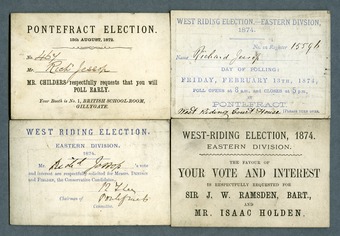 PONTEFRACT ELECTION.
15th AUGUST, 1872.
No. 467
Mr. Richd Jessop
MR. CHILDERS respectfully requests that you will
POLL EARLY.
Your Booth is No. 1, BRITISH SCHOOL-ROOM,
GILLYGATE.
WEST RIDING ELECTION.—EASTERN DIVISION,
1874.
No. on Register 15546
Name Richard Jessop
DAY OF POLLING:
FRIDAY, FEBRUARY 13TH, 1874,
POLL OPENS AT 8 A.M. AND CLOSES AT 5 P.M.
PONTEFRACT
West Riding Court House
WEST RIDING ELECTION.
EASTERN DIVISION.
1874.
Mr. Richd Jessop 's vote
and interest are respectfully solicited for Messrs.
and FIELDEN, the Conservative Candidates.
Chairman of
Pontefract
Committee.
WEST-RIDING ELECTION, 1874.
EASTERN DIVISION.
THE FAVOUR OF
YOUR VOTE AND INTEREST
IS RESPECTFULLY REQUESTED FOR
SIR J. W. RAMSDEN, BART.,
AND
MR. ISAAC HOLDEN.